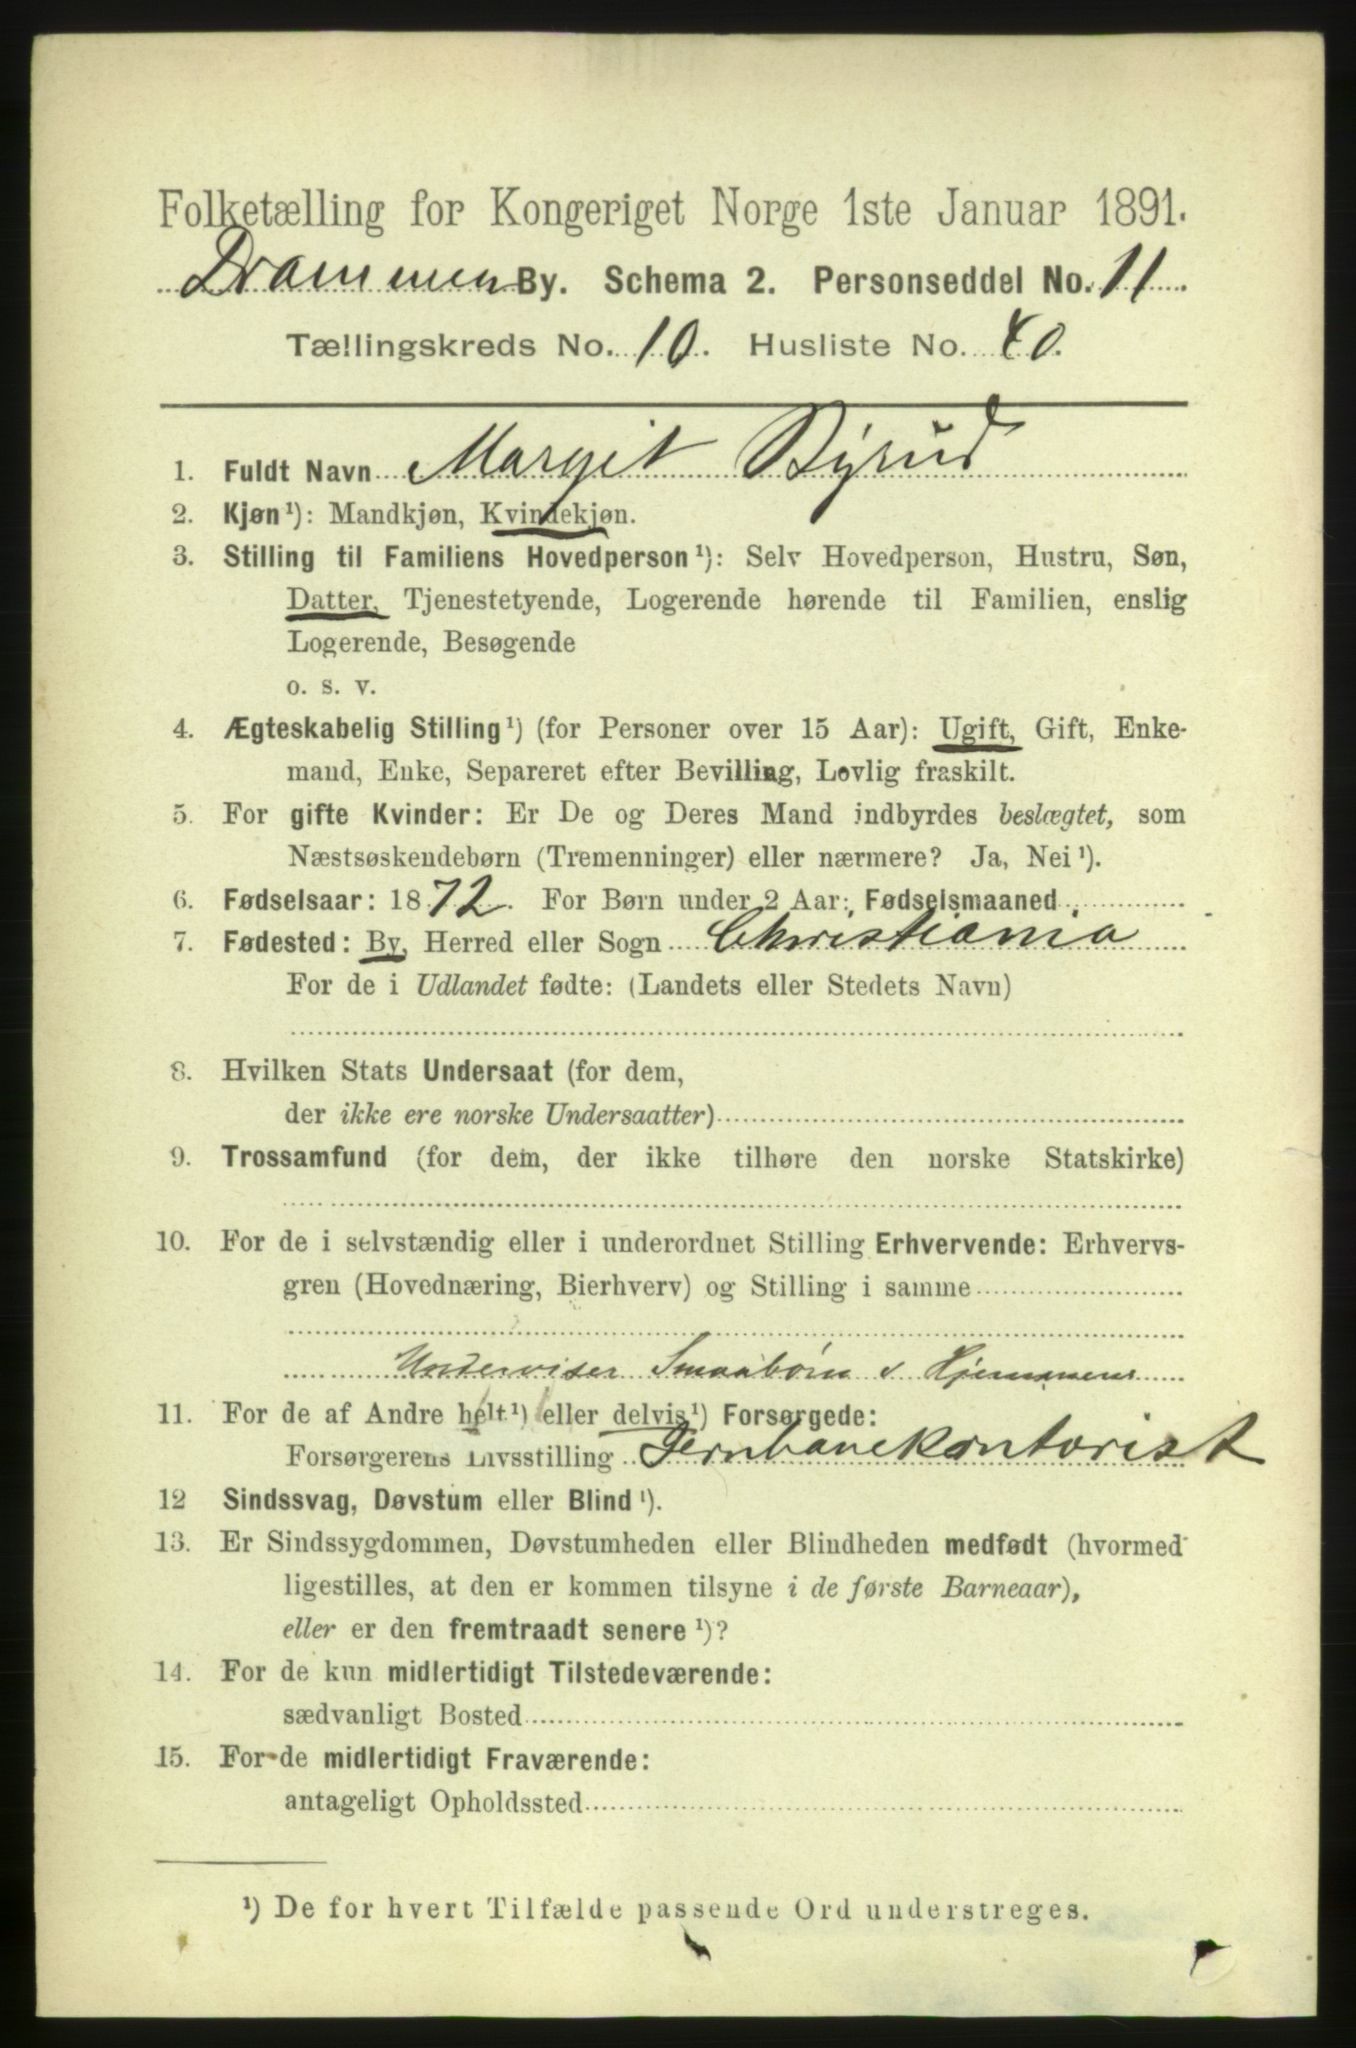 Folketælling for Kongeriget Norge 1ste Januar 1891.
Drammen By. Schema 2. Personseddel No. 11
Tællingskreds No. 10. Husliste No. 40.
1. Fuldt Navn Margit Byrud
2. Kjøn¹): Mandkjøn, Kvindekjøn.
3. Stilling til Familiens Hovedperson¹): Selv Hovedperson, Hustru, Søn,
Datter, Tjenestetyende, Logerende hørende til Familien, enslig
Logerende, Besøgende
o. s. v.
4. Ægteskabelig Stilling¹) (for Personer over 15 Aar): Ugift, Gift, Enke-
mand, Enke, Separeret efter Bevilling, Lovlig fraskilt.
5. For gifte Kvinder: Er De og Deres Mand indbyrdes beslægtet, som
Næstsøskendebørn (Tremenninger) eller nærmere? Ja, Nei¹).
6. Fødselsaar: 1872. For Børn under 2 Aar: Fødselsmaaned
7. Fødested: By, Herred eller Sogn Christiania
For de i Udlandet fødte: (Landets eller Stedets Navn)
8. Hvilken Stats Undersaat (for dem,
der ikke ere norske Undersaatter)
9. Trossamfund (for dem, der ikke tilhøre den norske Statskirke)
10. For de i selvstændig eller i underordnet Stilling Erhvervende: Erhvervs-
gren (Hovednæring, Bierhverv) og Stilling i samme
Underviser Smaabørn i Hjemmene
11. For de af Andre helt¹) eller delvis¹) Forsørgede:
Forsørgerens Livsstilling Jernbanekontorist
12 Sindssvag, Døvstum eller Blind¹).
13. Er Sindssygdommen, Døvstumheden eller Blindheden medfødt (hvormed
ligestilles, at den er kommen tilsyne i de første Barneaar),
eller er den fremtraadt senere¹)?
14. For de kun midlertidigt Tilstedeværende:
sædvanligt Bosted
15. For de midlertidigt Fraværende:
antageligt Opholdssted
¹) De for hvert Tilfælde passende Ord understreges.